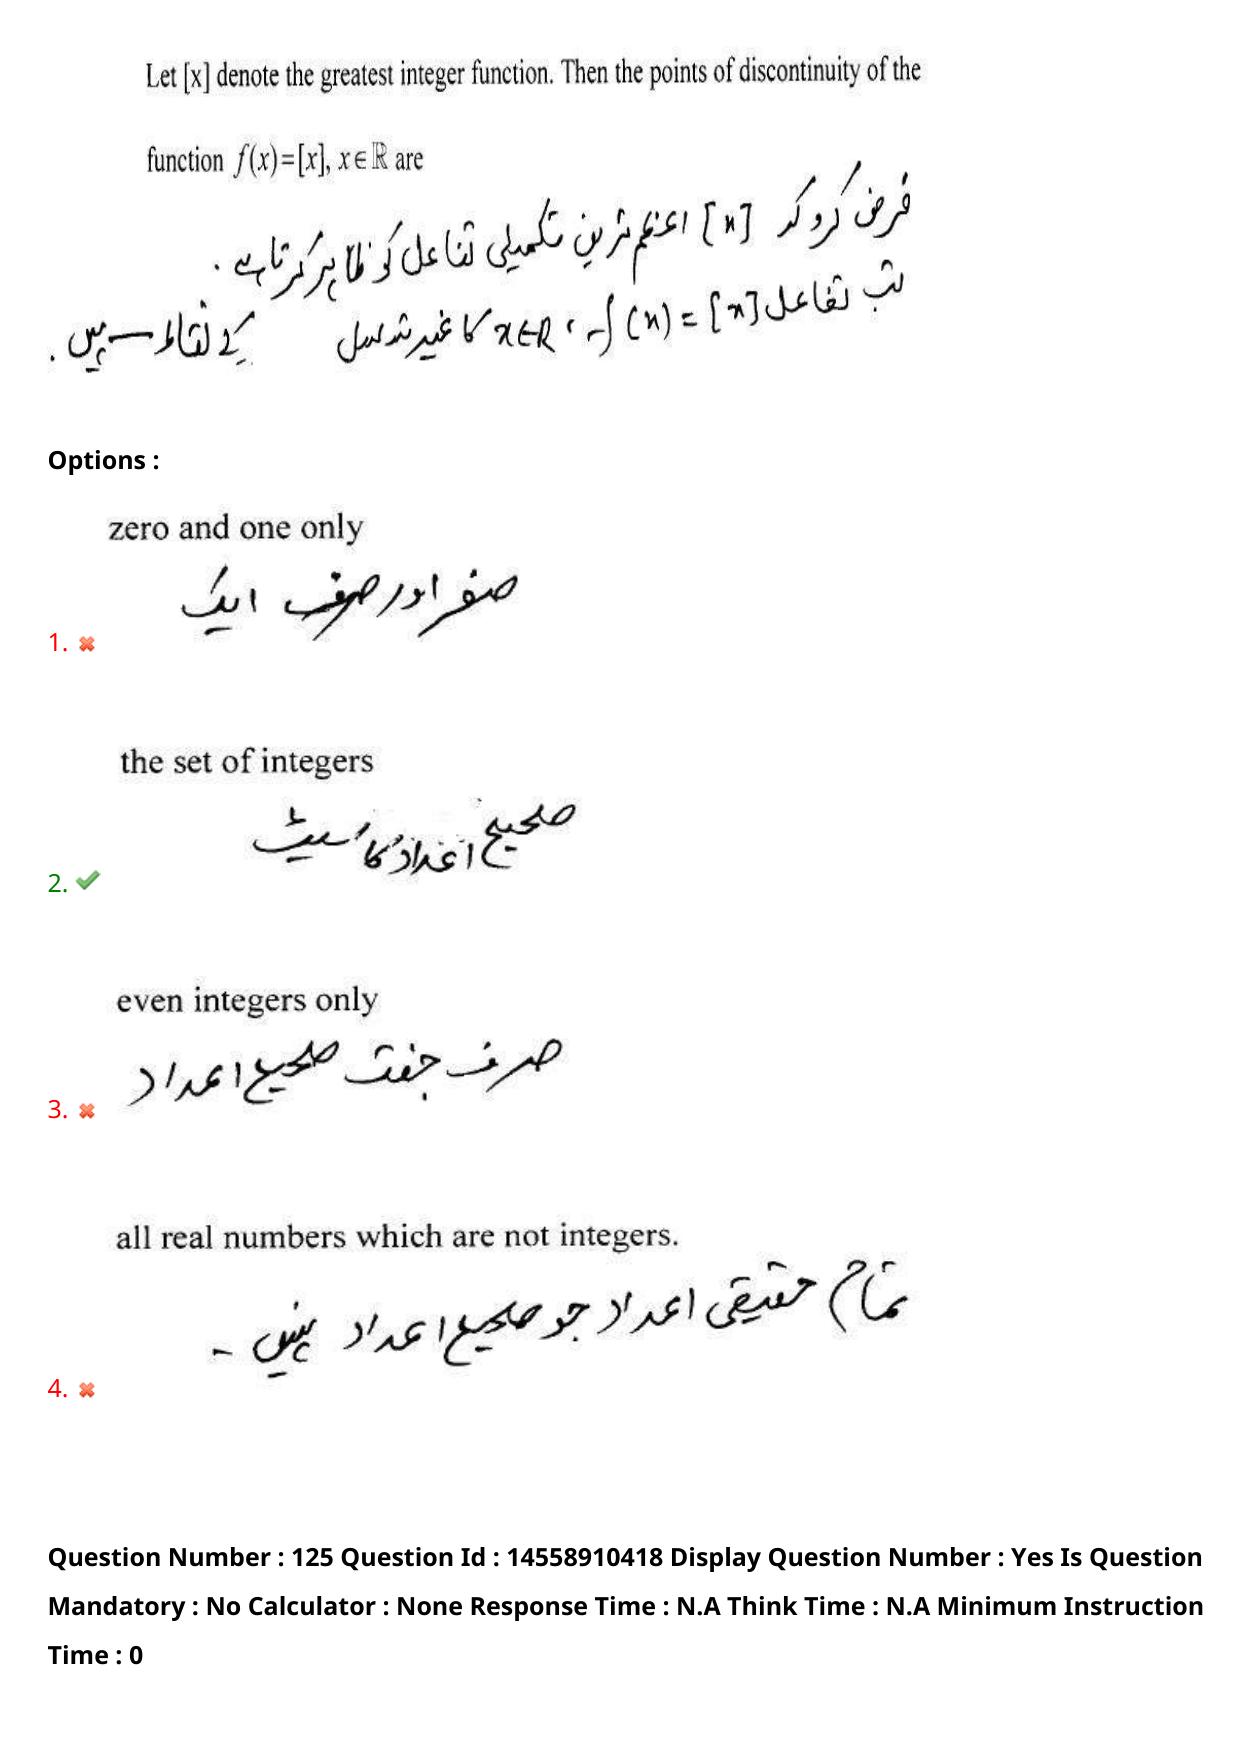 Let [x] denote the greatest integer function. Then the points of discontinuity of the
function f(x)=[x], x∈ℝ are
فرض کرو کہ [x] اعظم ترین تکمیلی تفاعل کو ظاہر کرتا ہے .
تب تفاعل f(x) = [x] ، x∈R کا غیر مسلسل کے نقاط — ہیں .
Options :
zero and one only
صفر اور صرف ایک
1.
the set of integers
صحیح اعداد کا سیٹ
2.
even integers only
صرف جفت صحیح اعداد
3.
all real numbers which are not integers.
تمام حقیقی اعداد جو صحیح اعداد نہیں -
4.
Question Number : 125 Question Id : 14558910418 Display Question Number : Yes Is Question
Mandatory : No Calculator : None Response Time : N.A Think Time : N.A Minimum Instruction
Time : 0